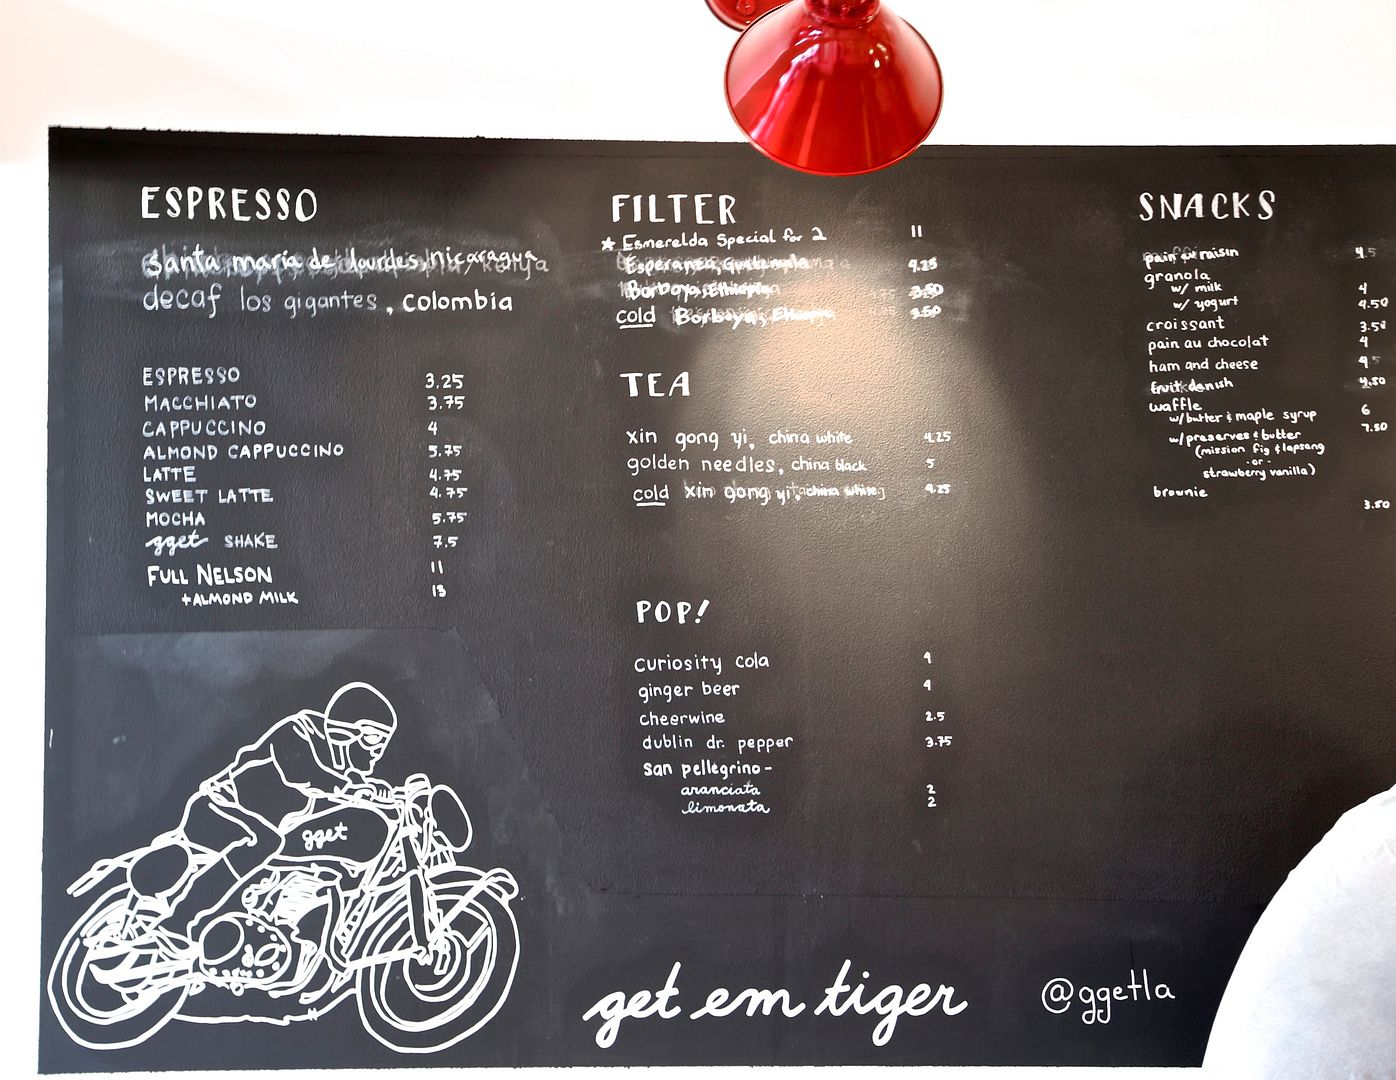 ESPRESSO
Santa maria de lourdes, nicaragua
decaf los gigantes, colombia
ESPRESSO 3.25
MACCHIATO 3.75
CAPPUCCINO 4
ALMOND CAPPUCCINO 5.75
LATTE 4.75
SWEET LATTE 4.75
MOCHA 5.75
gget SHAKE 7.5
FULL NELSON 11
+ALMOND MILK 13
gget
FILTER
★ Esmerelda Special for 2 11
Esperanza, Guatemala 4.25
Borboya, Ethiopia 3.50
cold Borboya, Ethiopia 3.50
TEA
xin gong yi, china white 4.25
golden needles, china black 5
cold xin gong yi, china white 4.25
POP!
curiosity cola 4
ginger beer 4
cheerwine 2.5
dublin dr. pepper 3.75
san pellegrino-
aranciata 2
limonata 2
SNACKS
pain au raisin 4.5
granola
w/ milk 4
w/ yogurt 4.50
croissant 3.50
pain au chocolat 4
ham and cheese 4.5
fruit danish 4.50
waffle
w/butter & maple syrup 6
w/preserves & butter 7.50
(mission fig & lapsang
-or-
strawberry vanilla)
brownie
3.50
get em tiger
@ggetla